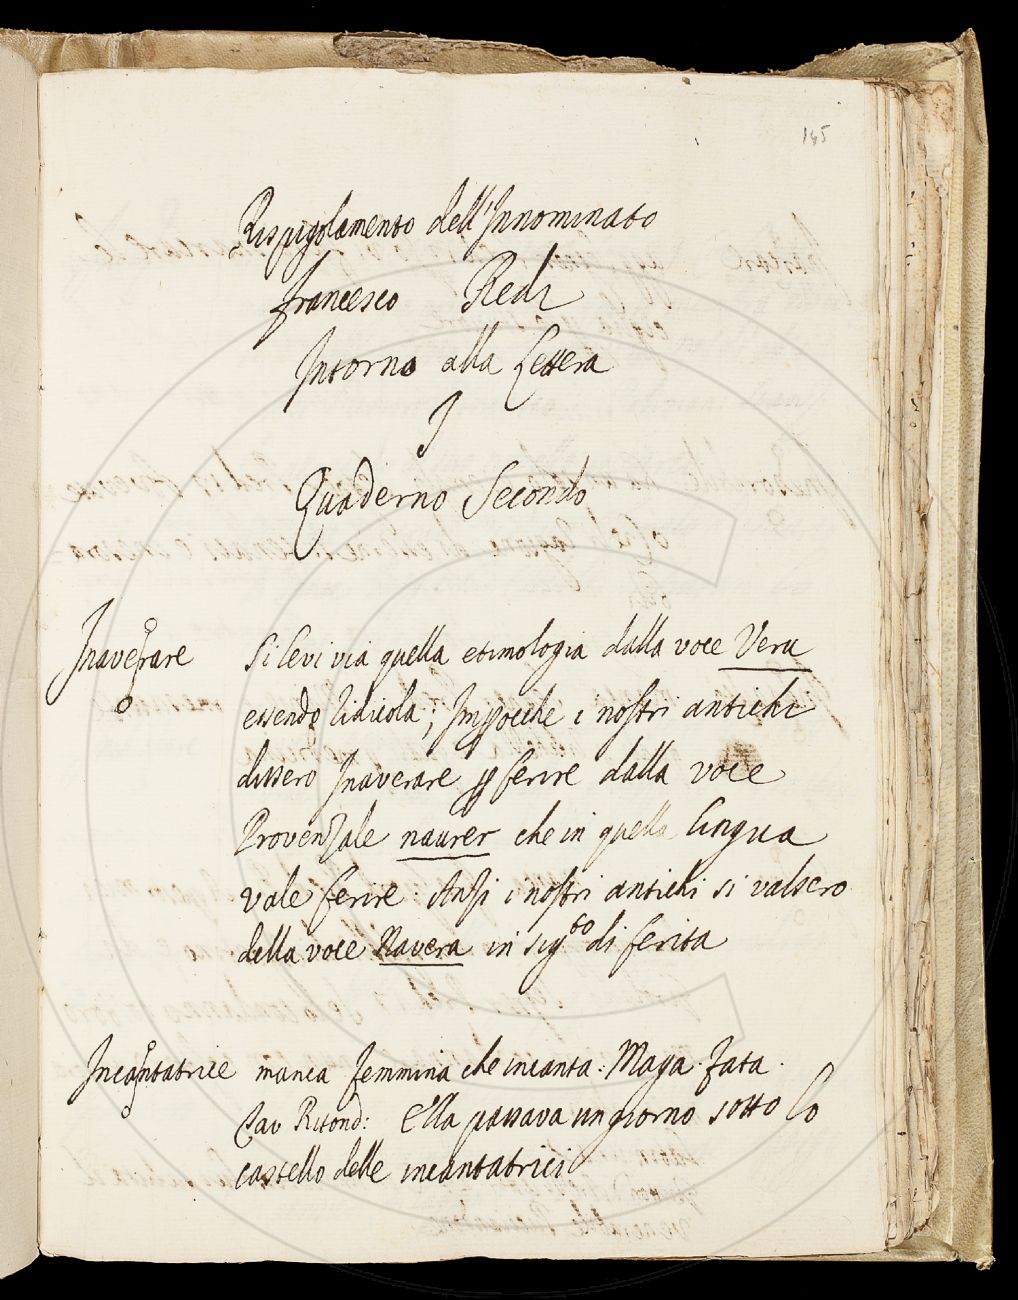 145
Rispigolamento dell'Innominato
Francesco Redi
Intorno alla Lettera
I
Quaderno Secondo
Inaverare Si levi via quella etimologia dalla voce Veru
essendo ridicola; Imp̱ocche i nostri antichi
dissero Inaverare p̱ ferire dalla voce
Provenzale naurer che in quella lingua
vale ferire: Anzi i nostri antichi si valsero
della voce Navera in sig.to di ferita
Incantatrice manca femmina che incanta: Maga. Fata.
Tav Ritond: Ella passava un giorno sotto lo
castello delle incantatrici